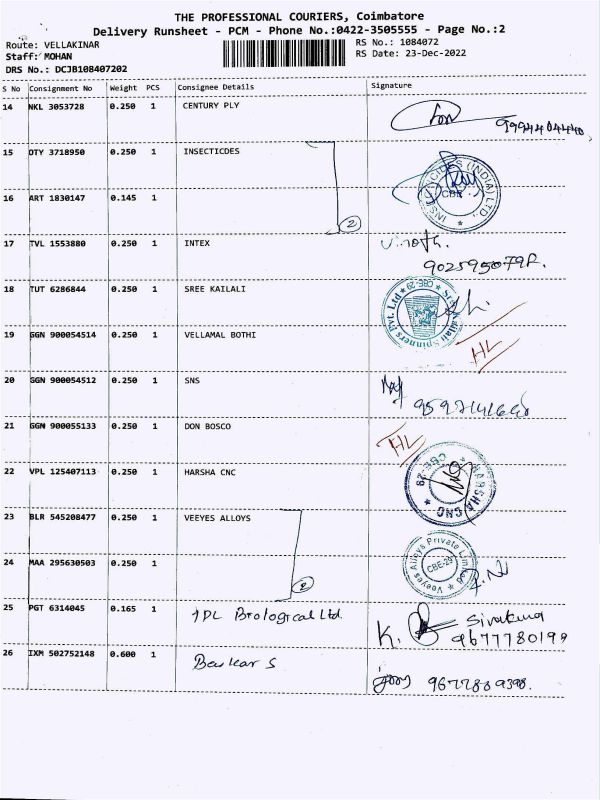 THE PROFESSIONAL COURIERS, Coimbatore
Delivery Runsheet - PCM - Phone No.:0422-3505555 - Page No.:2
Route: VELLAKINAR
RS No.: 1084072
Staff: MOHAN
RS Date: 23-Dec-2022
DRS No.: DCJB108407202
S No Consignment No Weight PCS Consignee Details Signature
14 NKL 3053728 0.250 1 CENTURY PLY
15 OTY 3718950 0.250 1 INSECTICDES
INSECTICIDES (INDIA) LTD. CBE
16 ART 1830147 0.145 1
2
17 TVL 1553880 0.250 1 INTEX
18 TUT 6286844 0.250 1 SREE KAILALI
CBE-29
19 GGN 900054514 0.250 1 VELLAMAL BOTHI
HL
20 GGN 900054512 0.250 1 SNS
21 GGN 900055133 0.250 1 DON BOSCO
HL
22 VPL 125407113 0.250 1 HARSHA CNC
HARSHA CNC CBE-29
23 BLR 545208477 0.250 1 VEEYES ALLOYS
Veeyes Alloys Private Limited CBE-29
24 MAA 295630503 0.250 1
2
25 PGT 6314045 0.165 1 Biological Ltd.
K.
9677780199
26 IXM 502752148 0.600 1